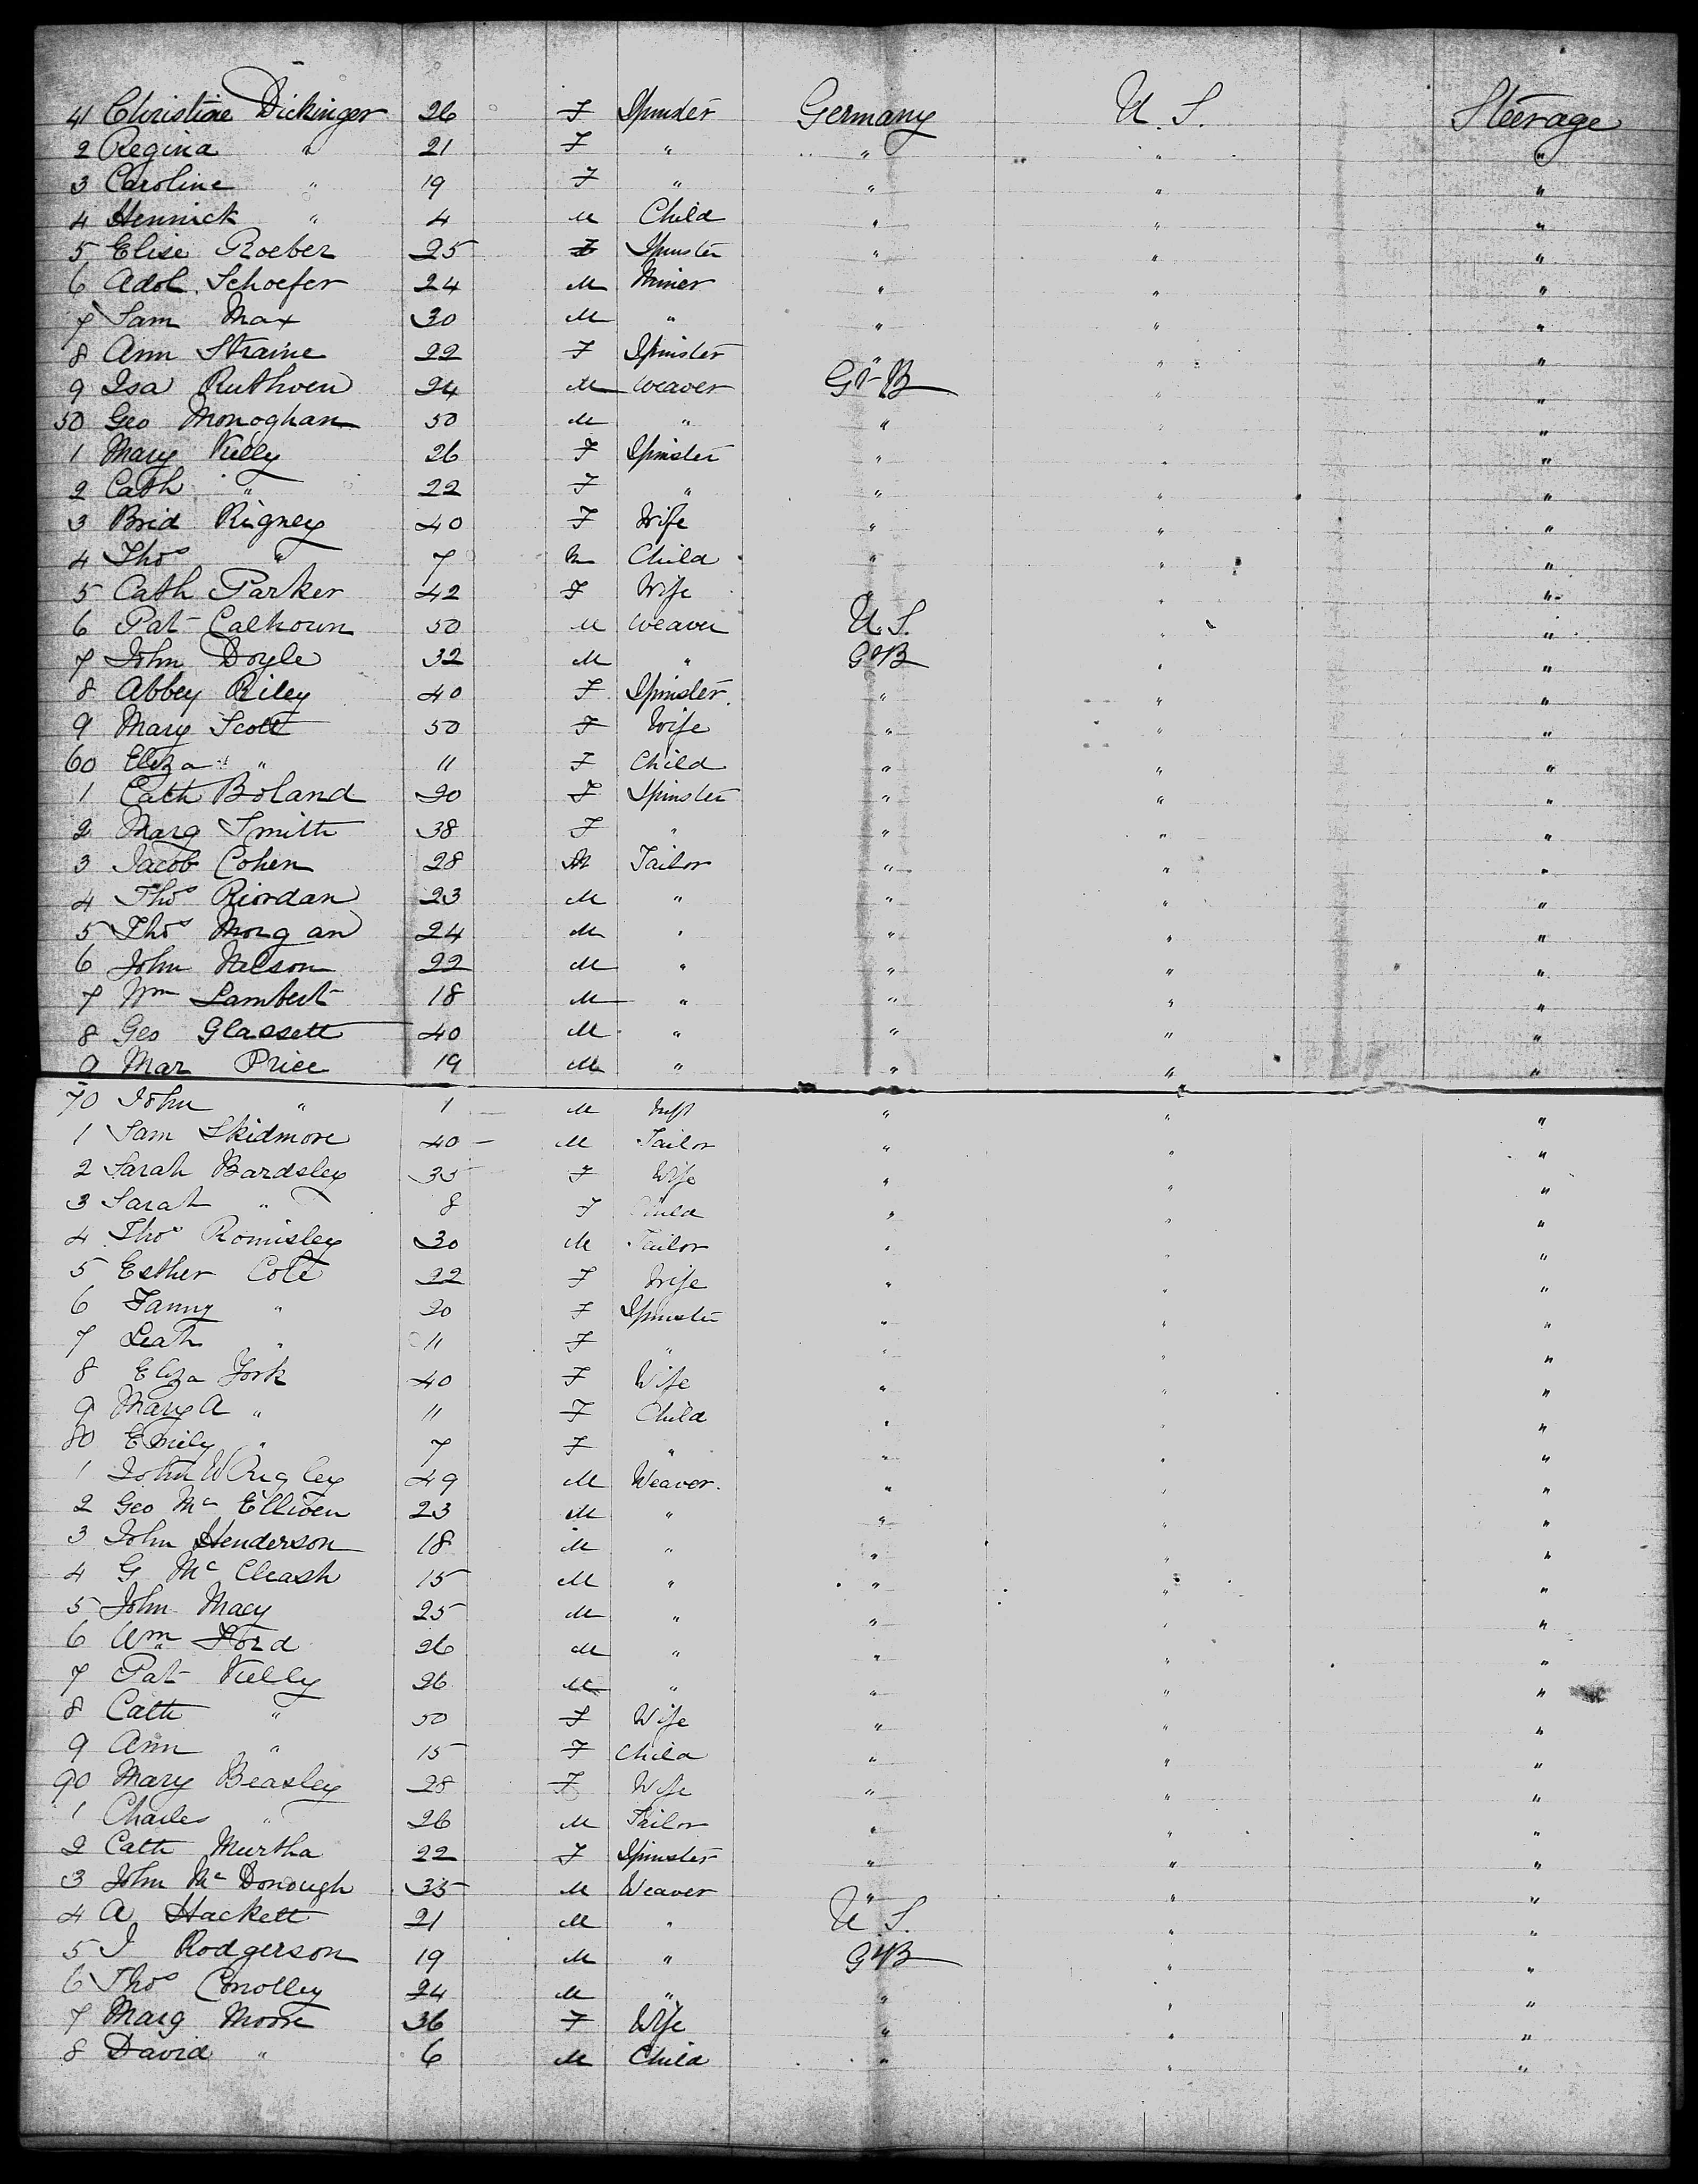 41 Christine Dickinger 26 F Spinster Germany U.S. Steerage
2 Regina " 21 F " " " "
3 Caroline " 19 F " " " "
4 Hennick " 4 M Child " " "
5 Elise Roeber 25 F Spinster " " "
6 Adol. Schoefer 24 M Miner " " "
7 Sam Max 30 M " " " "
8 Ann Straine 22 F Spinster " " "
9 Isa Ruthven 24 M Weaver Gt B " "
50 Geo Monoghan 50 M " " " "
1 Mary Kelly 26 F Spinster " " "
2 Cath " 22 F " " " "
3 Brid Rigney 40 F Wife " " "
4 Thos " 7 M Child " " "
5 Cath Parker 42 F Wife " " "
6 Pat Calhoun 50 M Weaver U.S. " "
7 John Doyle 32 M " GtB " "
8 Abbey Riley 40 F Spinster " " "
9 Mary Scott 50 F Wife " " "
60 Eliza " 11 F Child " " "
1 Cath Boland 20 F Spinster " " "
2 Marg Smith 38 F " " " "
3 Jacob Cohen 28 M Tailor " " "
4 Thos Riordan 23 M " " " "
5 Thos Morgan 24 M " " " "
6 John Nelson 22 M " " " "
7 Wm Lambert 18 M " " " "
8 Geo Glassett 40 M " " " "
9 Mar Price 19 M " " " "
70 John " 1 M Inft " " "
1 Sam Skidmore 40 M Tailor " " "
2 Sarah Bardsley 35 F Wife " " "
3 Sarah " 8 F Child " " "
4 Thos Romisley 30 M Tailor " " "
5 Esther Cole 22 F Wife " " "
6 Fanny " 20 F Spinster " " "
7 Leah " 11 F " " " "
8 Eliza York 40 F Wife " " "
9 Mary A " 11 F Child " " "
80 Emily " 7 F " " " "
1 John Wrigley 49 M Weaver " " "
2 Geo Mc Ellwen 23 M " " " "
3 John Henderson 18 M " " " "
4 G Mc Cleash 15 M " " " "
5 John Macy 25 M " " " "
6 Wm Ford 26 M " " " "
7 Pat Kelly 26 M " " " "
8 Cath " 50 F Wife " " "
9 Ann " 15 F Child " " "
90 Mary Beasley 28 F Wife " " "
1 Charles " 26 M Tailor " " "
2 Cath Murtha 22 F Spinster " " "
3 John Mc Donough 35 M Weaver " " "
4 A Hackett 21 M " U.S. " "
5 J Rodgerson 19 M " GtB " "
6 Thos Conolley 24 M " " " "
7 Marg Moore 36 F Wife " " "
8 David " 6 M Child " " "